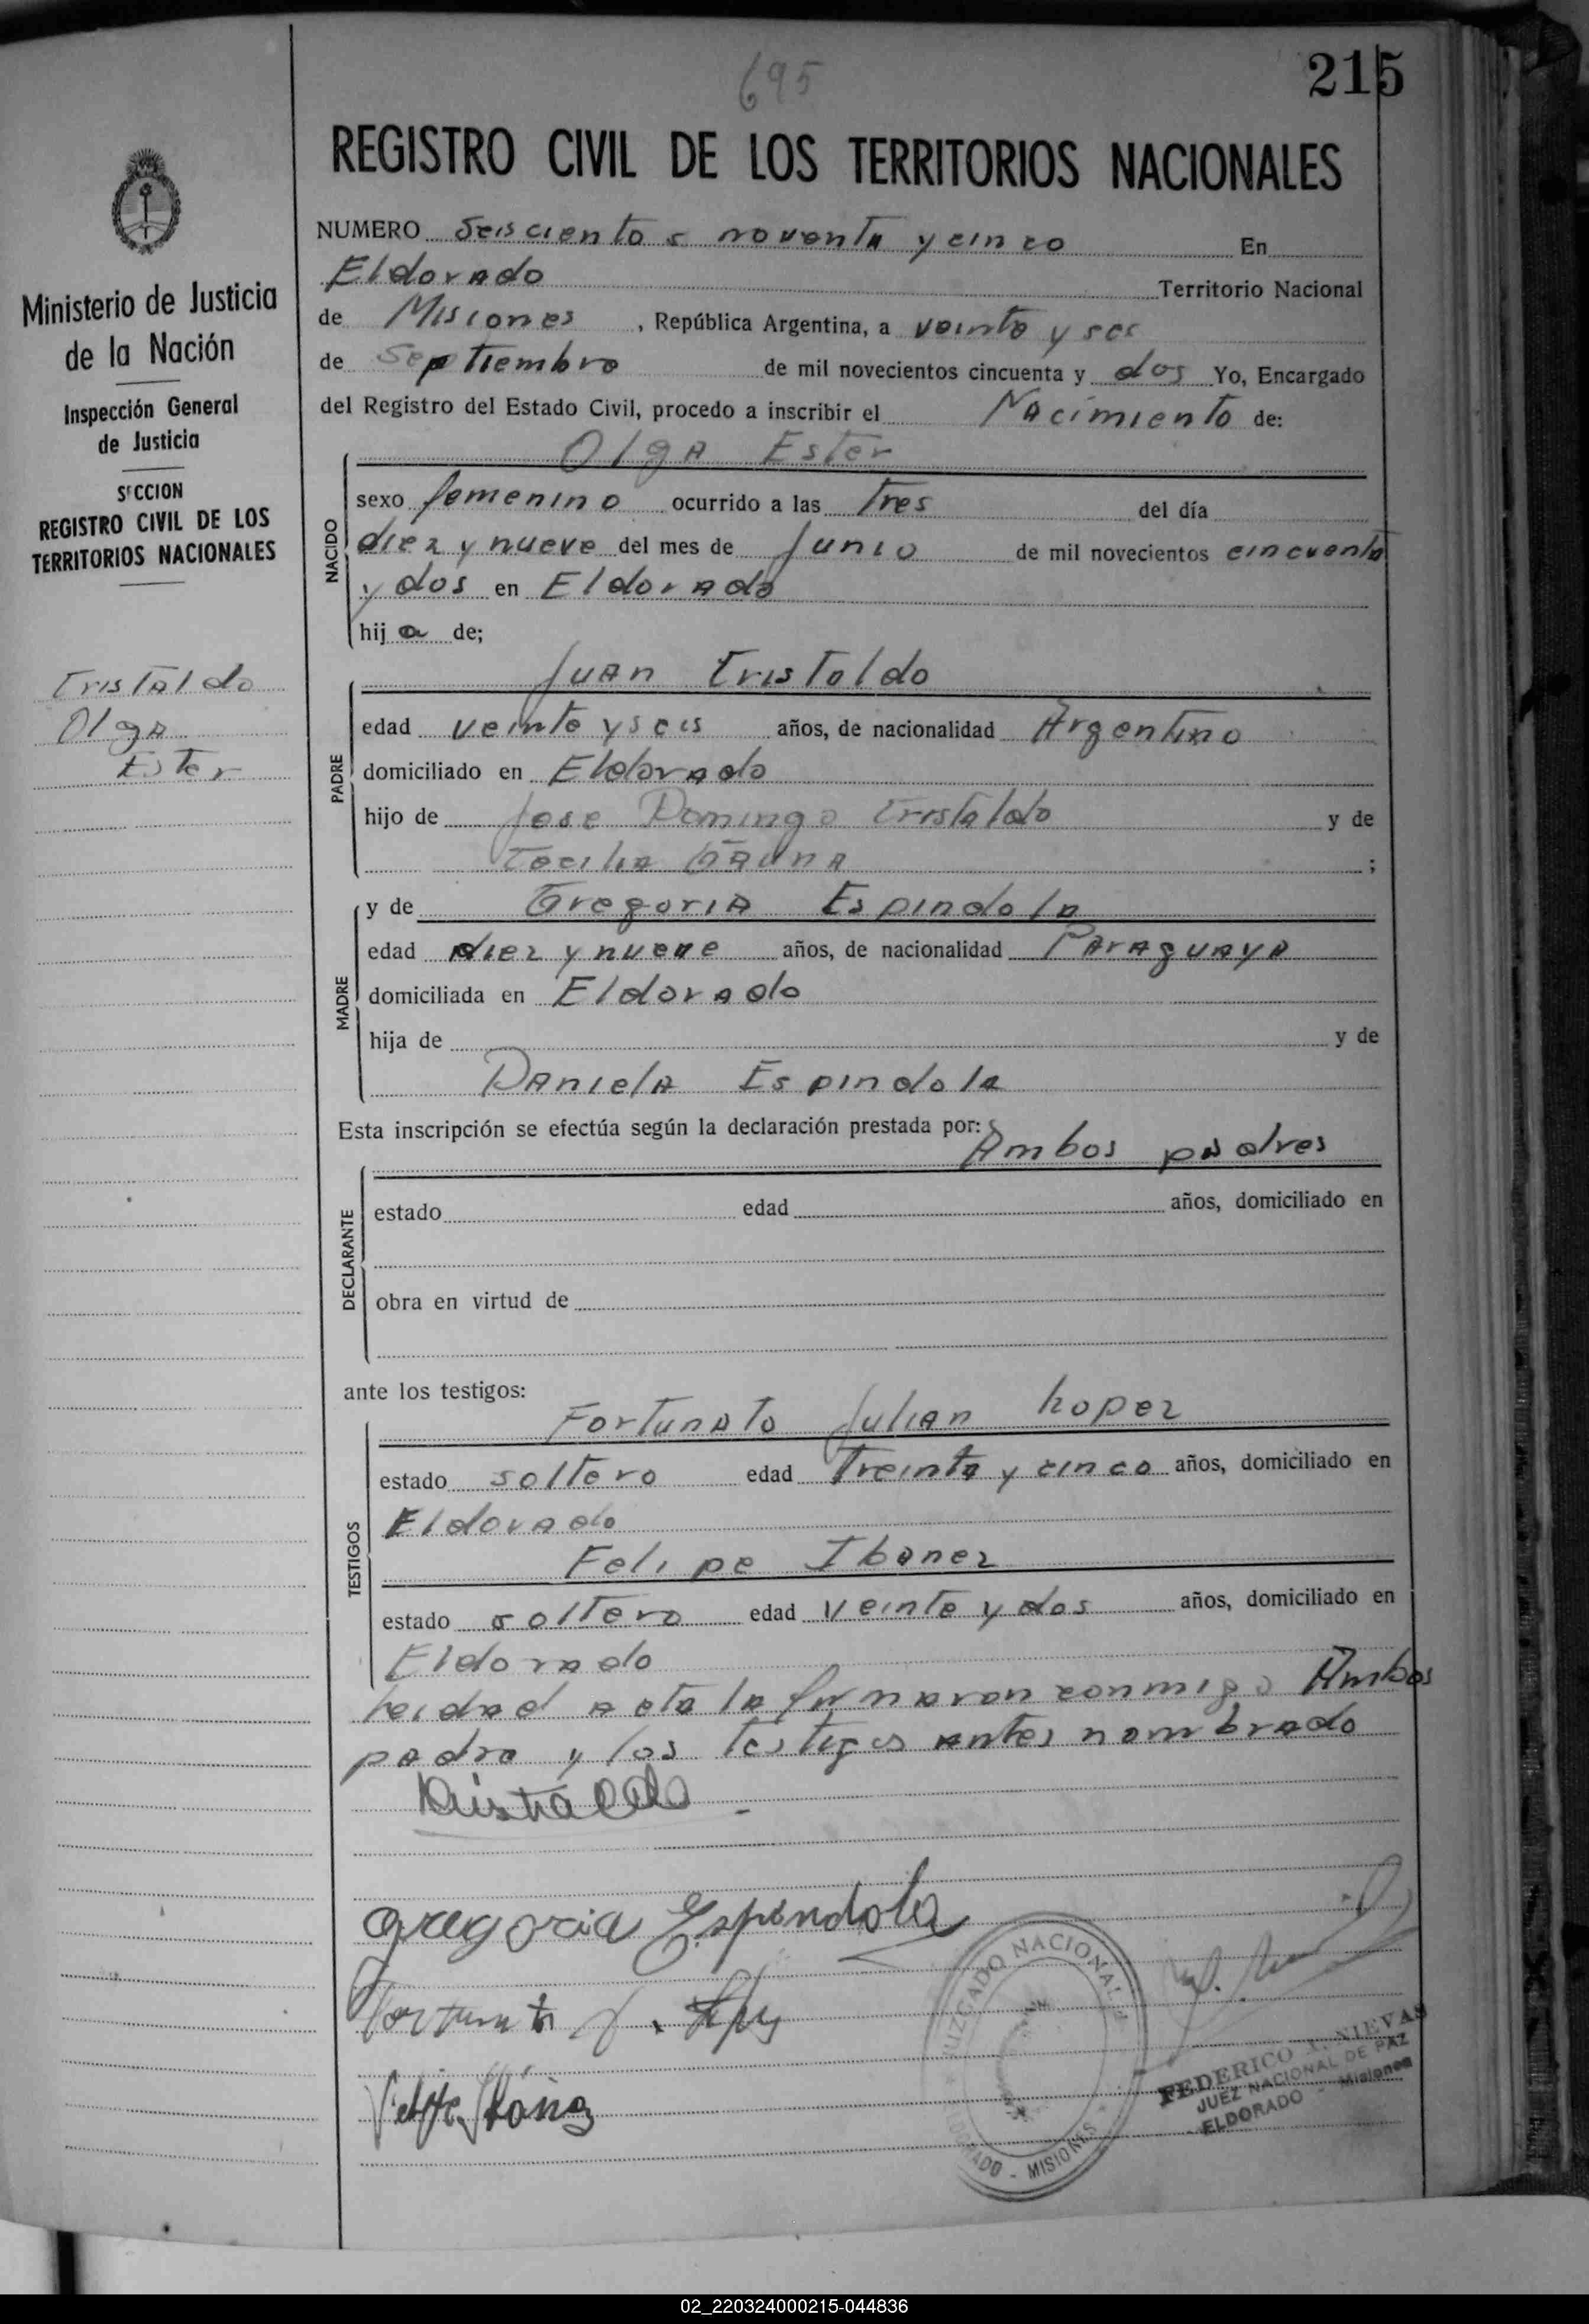 695
215
REGISTRO CIVIL DE LOS TERRITORIOS NACIONALES
Ministerio de Justicia
de la Nación
Inspección General
de Justicia
SECCION
REGISTRO CIVIL DE LOS
TERRITORIOS NACIONALES
Cristaldo
Olga
Ester
NUMERO seiscientos noventa y cinco En
Eldorado Territorio Nacional
de Misiones, República Argentina, a veinte y seis
de Septiembre de mil novecientos cincuenta y dos Yo, Encargado
del Registro del Estado Civil, procedo a inscribir el Nacimiento de:
Olga Ester
NACIDO
sexo femenino ocurrido a las Tres del día
diez y nueve del mes de Junio de mil novecientos cincuenta
y dos en Eldorado
hija de;
Juan Cristaldo
PADRE
edad veinte y seis años, de nacionalidad Argentino
domiciliado en Eldorado
hijo de Jose Domingo Cristaldo y de
Cecilia ;
MADRE
y de Gregoria Espindola
edad diez y nueve años, de nacionalidad Paraguaya
domiciliada en Eldorado
hija de y de
Daniela Espindola
Esta inscripción se efectúa según la declaración prestada por:
Ambos padres
DECLARANTE
estado edad años, domiciliado en
obra en virtud de
ante los testigos:
Fortunato Julian Lopez
TESTIGOS
estado soltero edad Treinta y cinco años, domiciliado en
Eldorado
Felipe Ibanez
estado soltero edad veinte y dos años, domiciliado en
Eldorado
Leida el acta la firmaron conmigo Ambos
padre y los testigos antes nombrado
Cristaldo
Gregoria Espindola
JUZGADO NACIONAL
ELDORADO - MISIONES
FEDERICO A. NIEVAS
JUEZ NACIONAL DE PAZ
ELDORADO - Misiones
02_220324000215-044836